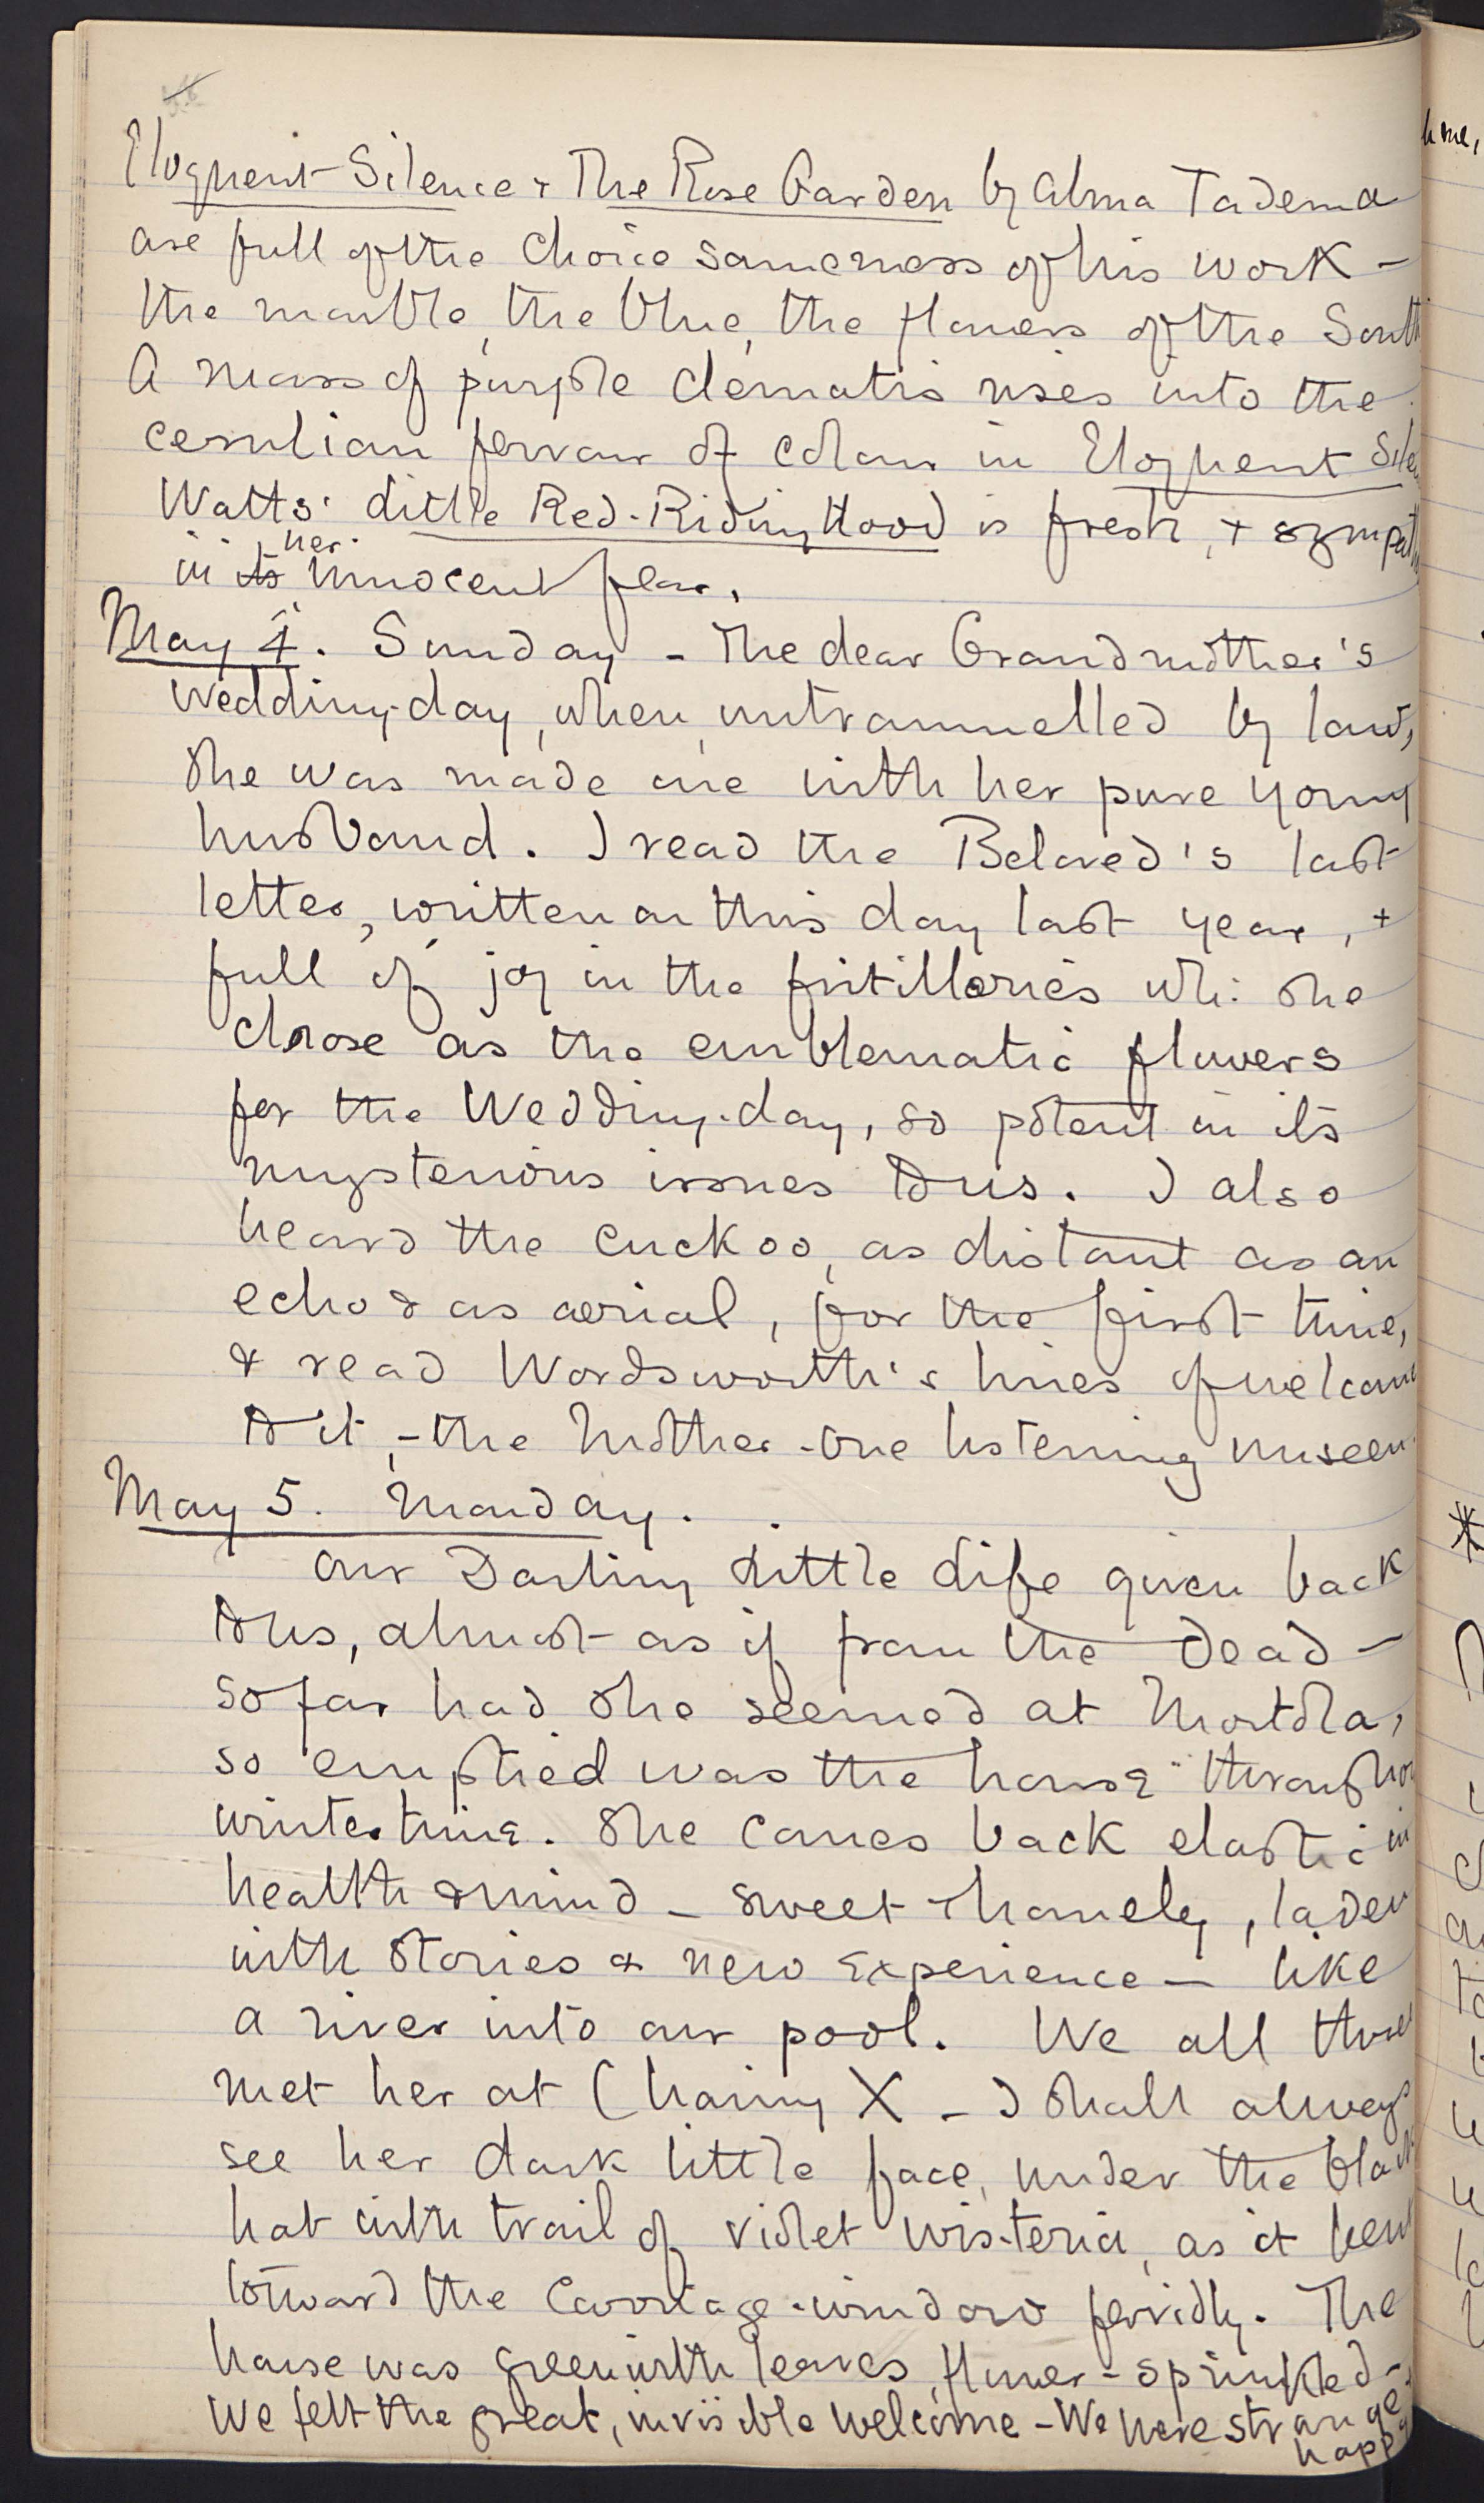 Eloquent Silence & The Rose Garden by Alma Tadema
are full of the choice sameness of his work –
the marble, the blue, the flowers of the South
A mass of purple clematis rises into the
cerulian fervour of colour in Eloquent Sile
Watts' Little Red-Riding Hood is fresh, & sympath
her
in its innocent fear.
May 4. Sunday – The dear Grandmother's
Wedding-day, when, untrammelled by law,
she was made one with her pure young
husband. I read the Beloved's last
letter, written on this day last year, &
full of joy in the fritillaries wh: she
chose as the emblematic flowers
for the Wedding-day, so potent in its
mysterious issues to us. I also
heard the cuckoo, as distant as an
echo & as aerial, for the first time,
& read Wordsworth's lines of welcome
to it, – the Mother-one listening unseen.
May 5. Monday.
Our Darling Little Life given back
to us, almost as if from the Dead –
so far had she seemed at
so emptied was the house through
wintertime. She comes back elastic in
health & mind – sweet & homely, laden
with stories & new experience – like
a river into our pool. We all three
met her at Charing X – I shall always
see her dark little face, under the black
hat with trail of violet wisteria, as it bent
toward the carriage-window fervidly. The
house was green with leaves, flower-sprinkled –
We felt the great, invisible welcome – We were strange
happy